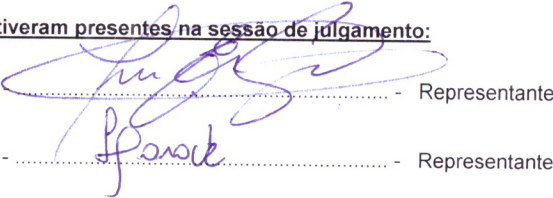 tiveram presentes na sessão de julgamento:
........................................................ - Representante
- ........................................................ - Representante